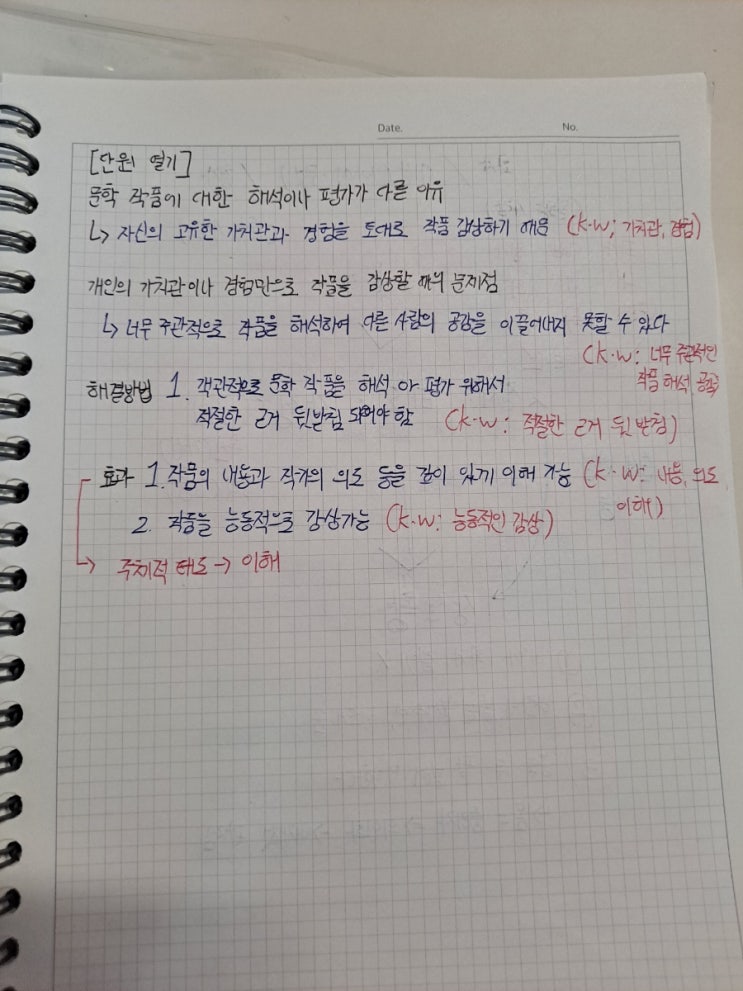 Date.
No.
[단원 열기]
문학 작품에 대한 해석이나 평가가 다른 이유
↳ 자신의 고유한 가치관과 경험을 토대로 작품 감상하기 때문 (k·w; 가치관, 경험)
개인의 가치관이나 경험만으로 작품을 감상할 때의 문제점
↳ 너무 주관적으로 작품을 해석하여 다른 사람의 공감을 이끌어내지 못할 수 있다
(k·w: 너무 주관적인
작품 해석 공감
해결방법 1. 객관적으로 문학 작품을 해석 아 평가 위해서
적절한 근거 뒷받침 되어야 함 (k·w: 적절한 근거 뒷받침)
효과 1. 작품의 내용과 작가의 의도 등을 깊이 있게 이해 가능 (k·w: 내용, 의도
이해)
2. 작품을 능동적으로 감상가능 (k·w: 능동적인 감상)
→ 주체적 태도 → 이해